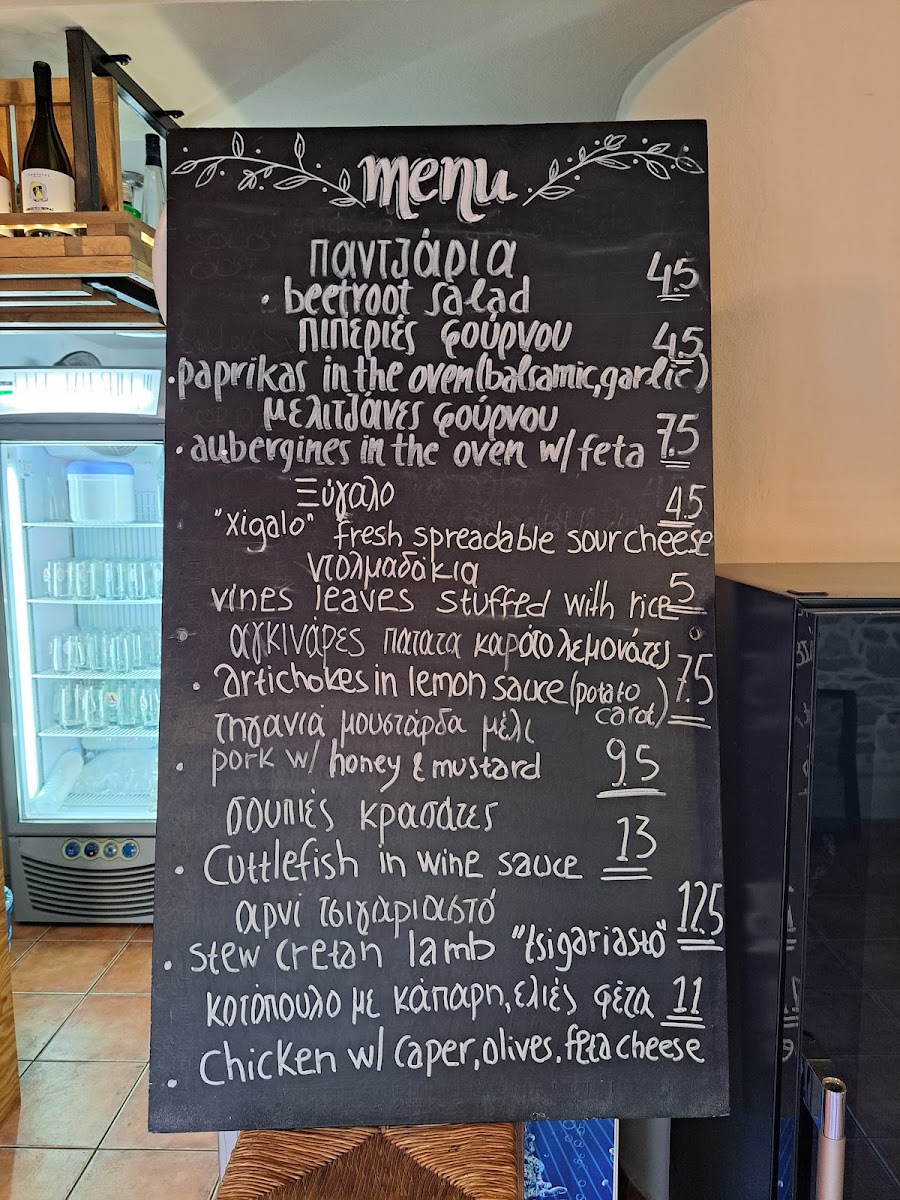 menu
παντζάρια
• beetroot salad 4.5
πιπεριές φούρνου 4.5
• paprikas in the oven (balsamic, garlic)
μελιτζάνες φούρνου 7.5
• aubergines in the oven w/ feta
Ξύγαλο 4.5
"xigalo" fresh spreadable sour cheese
ντολμαδάκια 5
vines leaves stuffed with rice
αγκινάρες πατατα καρότο λεμονάτες 7.5
• artichokes in lemon sauce (potato carot)
τηγανιά μουστάρδα μέλι
• pork w/ honey & mustard 9.5
σουπιές κρασάτες 13
• Cuttlefish in wine sauce
αρνί τσιγαριαστό 12.5
• stew cretan lamb "tsigariasto"
κοτόπουλο με κάπαρη, ελιές φέτα 11
• Chicken w/ caper, olives, feta cheese